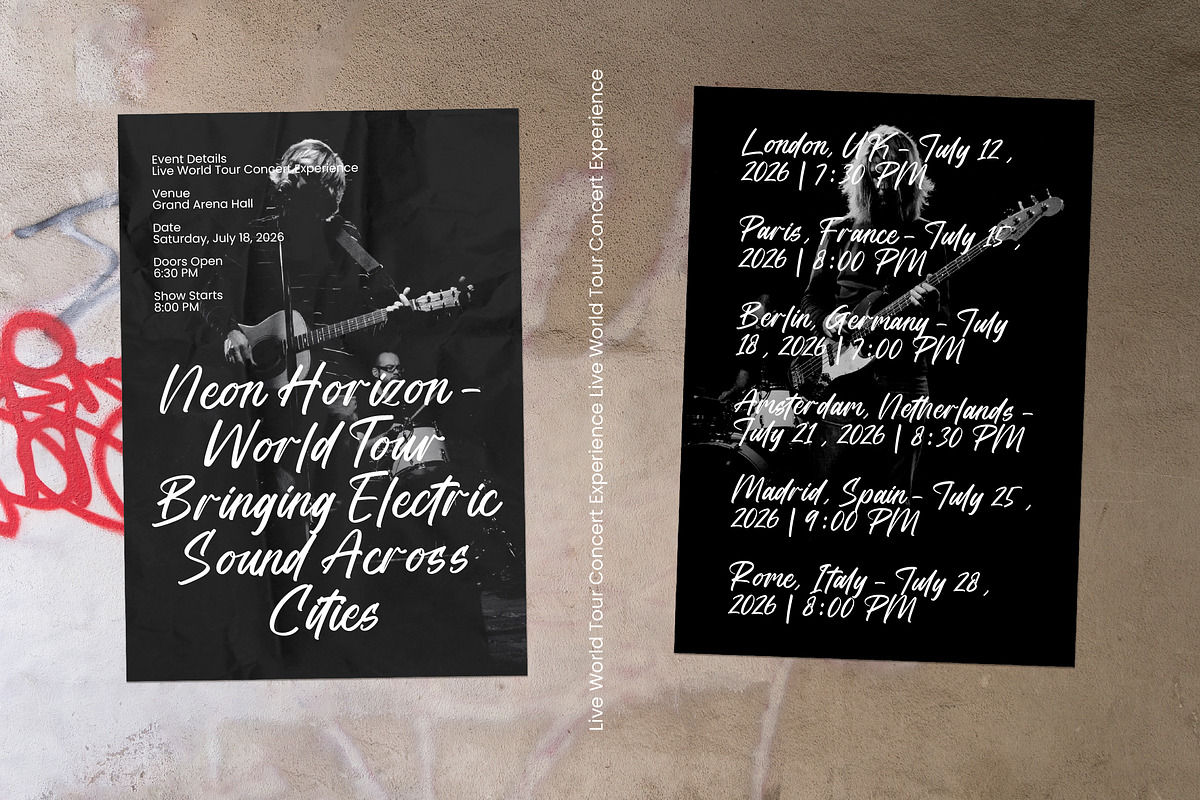 Event Details
Live World Tour Concert Experience
Venue
Grand Arena Hall
Date
Saturday, July 18, 2026
Doors Open
6:30 PM
Show Starts
8:00 PM
Neon Horizon –
World Tour
Bringing Electric
Sound Across
Cities
Live World Tour Concert Experience Live World Tour Concert Experience
London, UK – July 12 ,
2026 | 7:30 PM
Paris, France – July 15 ,
2026 | 8:00 PM
Berlin, Germany – July
18 , 2026 | 7:00 PM
Amsterdam, Netherlands –
July 21 , 2026 | 8:30 PM
Madrid, Spain – July 25 ,
2026 | 9:00 PM
Rome, Italy – July 28 ,
2026 | 8:00 PM